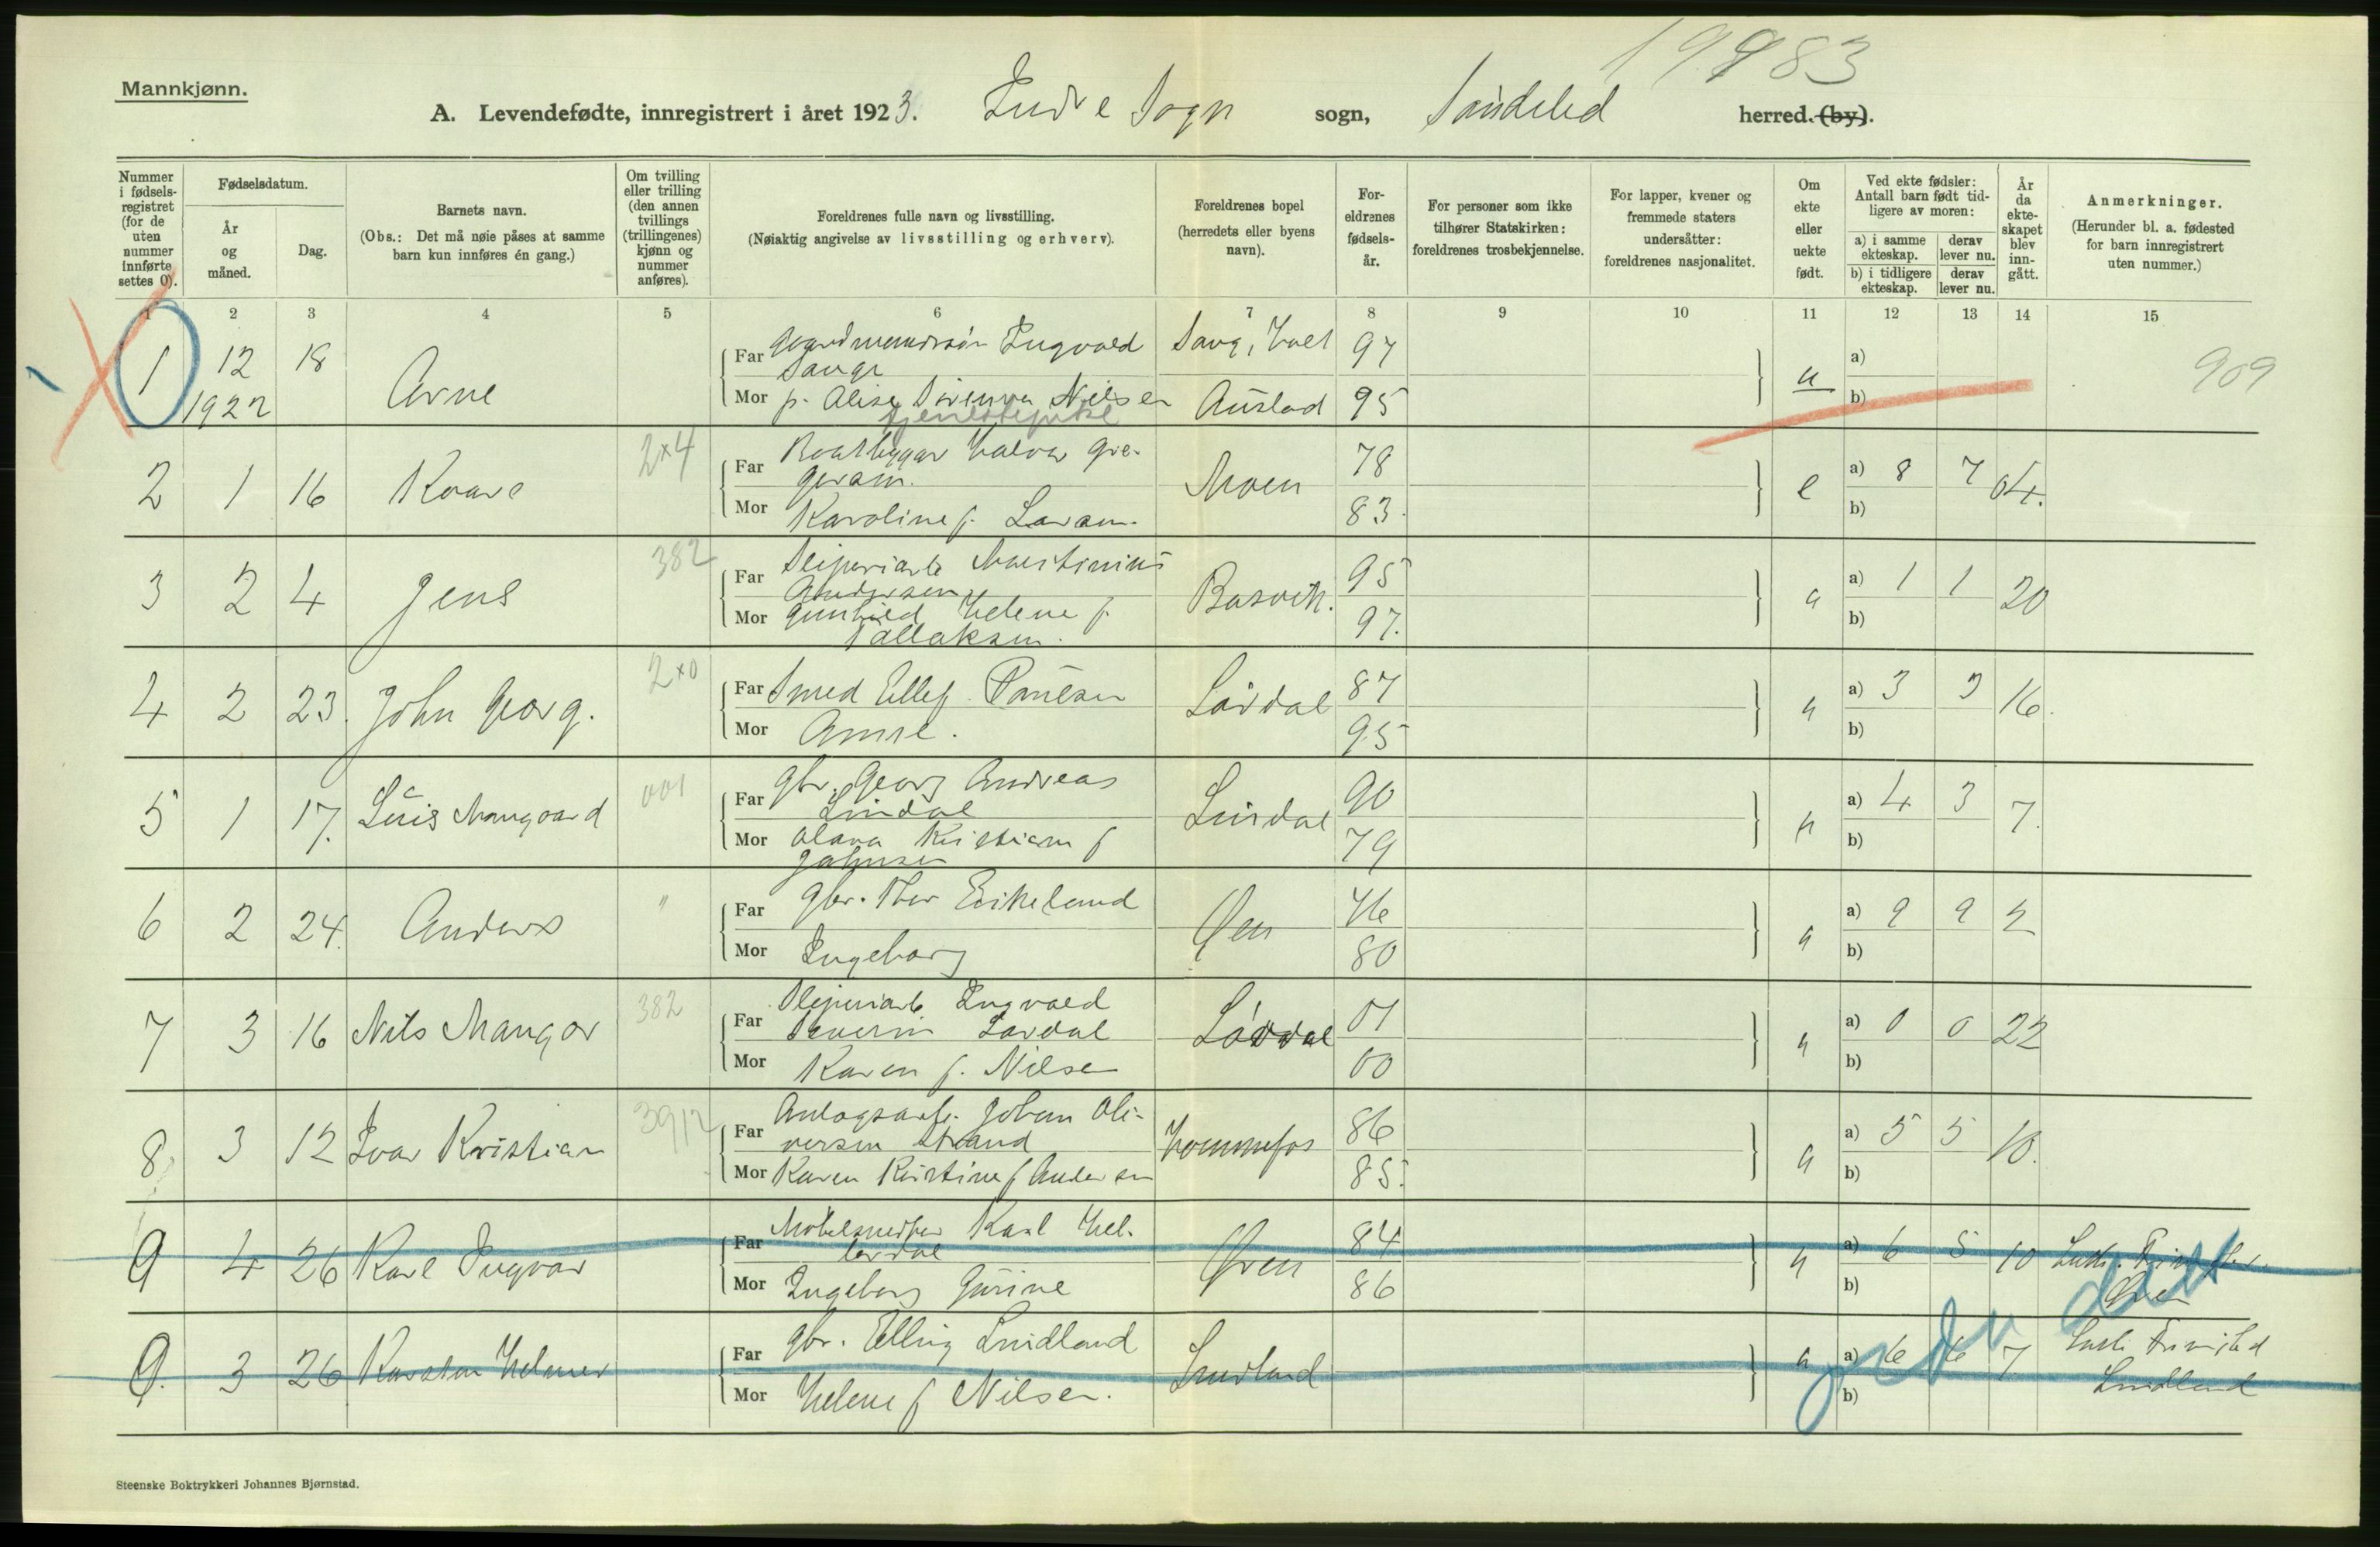 19983
Mannkjønn.
A. Levendefødte, innregistrert i året 1923. Indre Sogn sogn, Søndeled herred. (by).
Nummer i fødselsregistret (for de uten nummer innførte settes 0).
Fødselsdatum.
År og måned.
Dag.
Barnets navn.
(Obs.: Det må nøie påses at samme barn kun innføres én gang.)
Om tvilling eller trilling (den annen tvillings (trillingenes) kjønn og nummer anføres).
Foreldrenes fulle navn og livsstilling.
(Nøiaktig angivelse av livsstilling og erhverv).
Foreldrenes bopel (herredets eller byens navn).
Foreldrenes fødselsår.
For personer som ikke tilhører Statskirken: foreldrenes trosbekjennelse.
For lapper, kvener og fremmede staters undersåtter: foreldrenes nasjonalitet.
Om ekte eller uekte født.
Ved ekte fødsler: Antall barn født tidligere av moren:
a) i samme ekteskap. derav lever nu.
b) i tidligere ekteskap. derav lever nu.
År da ekteskapet blev inngått.
Anmerkninger.
(Herunder bl. a. fødested for barn innregistrert uten nummer.)
1 2 3 4 5 6 7 8 9 10 11 12 13 14 15
1 12 1922 18 Arne
Far Gaardmandssøn Ingvald Sauge 97
Mor p. Alise Nilsen Auslad 95 u a) b) 909
tjenestepike
2 1 16 Kaare 2x4
Far Baatbygger Halvor Gregersen. Moen 78
Mor Karoline f. Larsen. 83. e a) 8 7 04. b)
3 2 4 Jens 382
Far Sliperiarb Martinius Andersen Bosvik. 95
Mor Gunhild Helene f. Tallaksen. 97. a) 1 1 20 b)
4 2 23. John Georg. 2x0
Far Smed Ellef Paulsen Lövdal 87
Mor Anne. 95 a) 3 3 16. b)
5 1 17. Mangaard 001
Far gbr. Georg Andreas Lindal Lindal 90
Mor Olava Kristiane f Johnsen 79 a) 4 3 7. b)
6 2 24. Anders "
Far gbr. Ther Eikeland Øen 76
Mor Ingeborg 80 a) 9 9 2 b)
7 3 16 Nils Mangor 382
Far Sliperiarb Ingvald Severin Lövdal Lövdal 01
Mor Karen f. Nilsen 00 a) 0 0 22 b)
8 3 12 Ivar Kristian 3912
Far Anlagsarb. Johan Oliversen Strand Hommefos 86
Mor Karen Kristine f Andersen 85. a) 5 5 10. b)
0 4 26 Karl Ingvar
Far Karl Øven 84
Mor Ingeborg Gurine 86 a) 6 5 10 b)
0. 3 26 Karsten Helmer
Far gbr. Elling Lindland Lindland
Mor Helene f Nilsen. a) 6 6 7 b) Lindland
Steenske Boktrykkeri Johannes Bjørnstad.